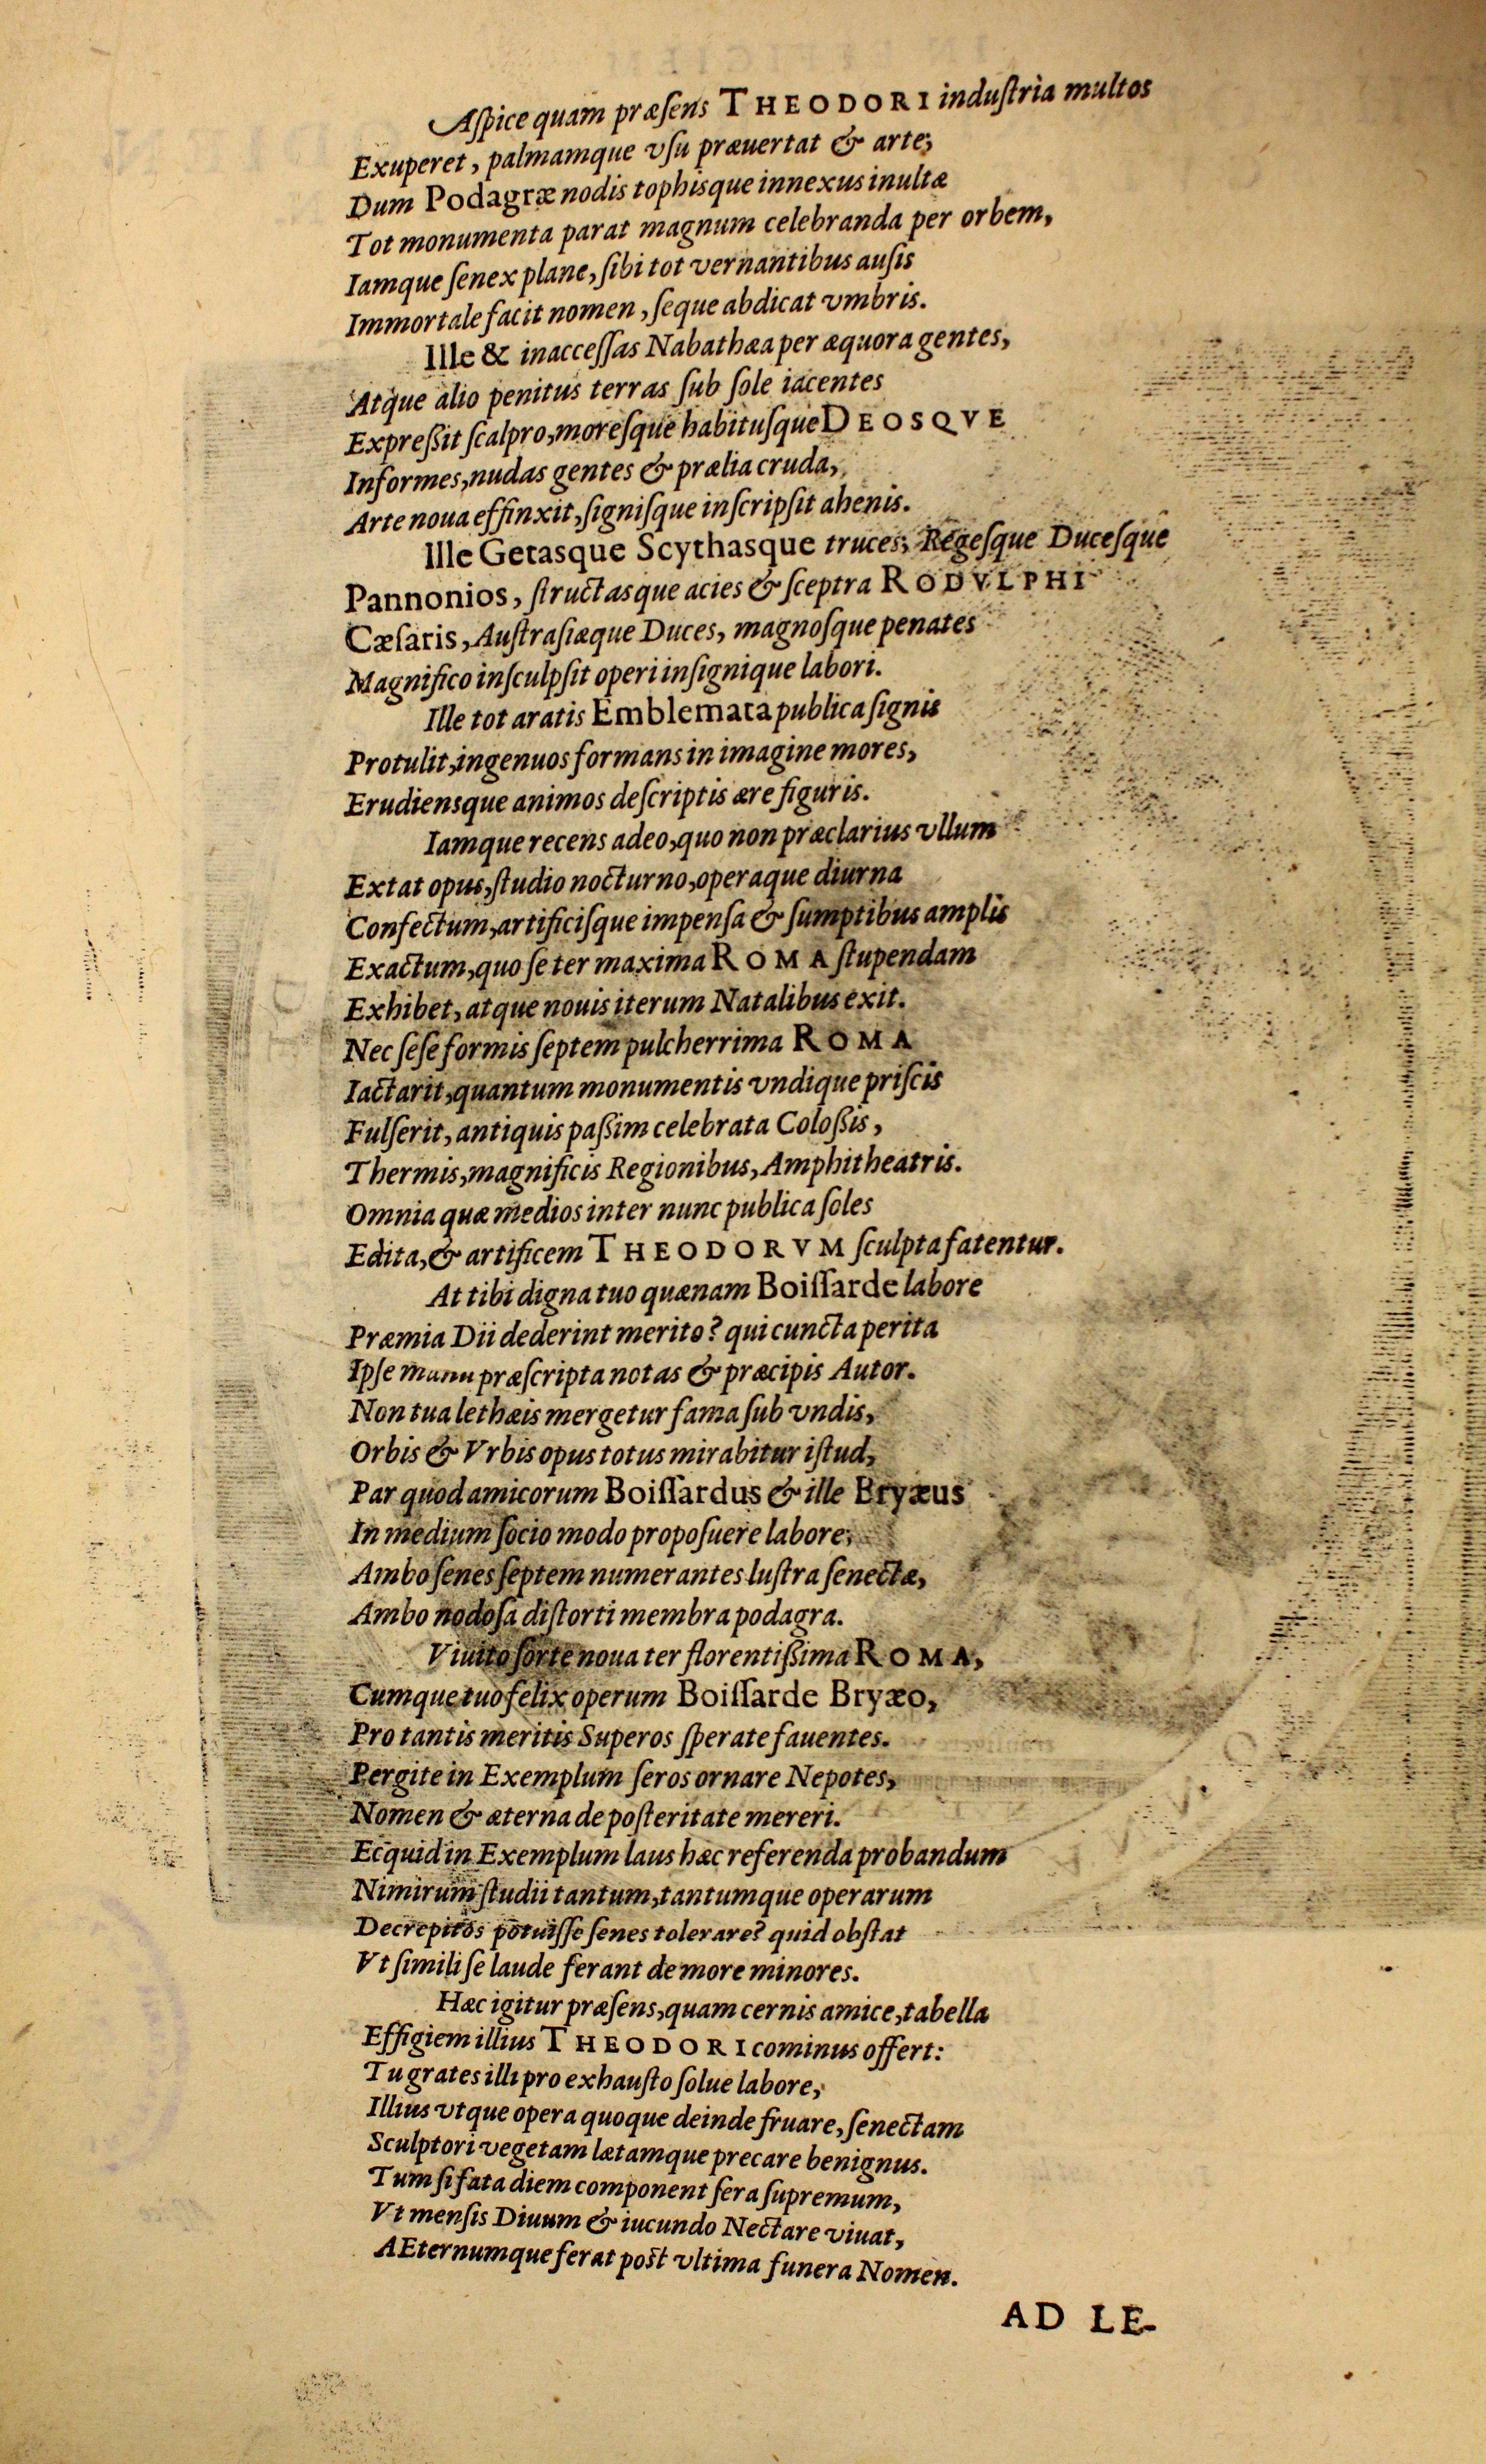 Aſpice quam præſens THEODORI induſtria multos
Exuperet, palmamque vſu præuertat & arte;
Dum Podagræ nodis tophisque innexus inultæ
Tot monumenta parat magnum celebranda per orbem,
Iamque ſenex plane, ſibi tot vernantibus auſis
Immortale facit nomen, ſeque abdicat vmbris.
Ille & inacceſſas Nabathæa per æquora gentes,
Atque alio penitus terras ſub ſole iacentes
Expreßit ſcalpro, moreſque habituſque DEOSQVE
Informes, nudas gentes & prælia cruda,
Arte noua effinxit, ſigniſque inſcripſit ahenis.
Ille Getasque Scythasque truces; Regeſque Duceſque
Pannonios, ſtructasque acies & ſceptra RODVLPHI
Cæſaris, Auſtraſiæque Duces, magnoſque penates
Magnifico inſculpſit operi inſignique labori.
Ille tot æratis Emblemata publica ſignis
Protulit, ingenuos formans in imagine mores,
Erudiensque animos deſcriptis ære figuris.
Iamque recens adeo, quo non præclarius vllum
Extat opus, ſtudio nocturno, operaque diurna
Confectum, artificiſque impenſa & ſumptibus amplis
Exactum, quo ſe ter maxima ROMA ſtupendam
Exhibet, atque nouis iterum Natalibus exit.
Nec ſeſe formis ſeptem pulcherrima ROMA
Iactarit, quantum monumentis vndique priſcis
Fulſerit, antiquis paßim celebrata Coloßis,
Thermis, magnificis Regionibus, Amphitheatris.
Omnia quæ medios inter nunc publica ſoles
Edita, & artificem THEODORVM ſculpta fatentur.
At tibi digna tuo quænam Boiſſarde labore
Præmia Dii dederint merito? qui cuncta perita
Ipſe manu præſcripta notas & præcipis Autor.
Non tua lethæis mergetur fama ſub vndis,
Orbis & Vrbis opus totus mirabitur iſtud,
Par quod amicorum Boiſſardus & ille Bryæus
In medium ſocio modo propoſuere labore;
Ambo ſenes ſeptem numerantes luſtra ſenectæ,
Ambo nodoſa diſtorti membra podagra.
Viuito ſorte noua ter florentißima ROMA,
Cumque tuo felix operum Boiſſarde Bryæo,
Pro tantis meritis Superos ſperate fauentes.
Pergite in Exemplum ſeros ornare Nepotes,
Nomen & æterna de poſteritate mereri.
Ecquid in Exemplum laus hæc referenda probandum
Nimirum ſtudii tantum, tantumque operarum
Decrepitos potuiſſe ſenes tolerare? quid obſtat
Vt ſimili ſe laude ferant de more minores.
Hæc igitur præſens, quam cernis amice, tabella
Effigiem illius THEODORI cominus offert:
Tu grates illi pro exhauſto ſolue labore,
Illius vtque opera quoque deinde fruare, ſenectam
Sculptori vegetam lætamque precare benignus.
Tum ſi fata diem component ſera ſupremum,
Vt menſis Diuum & iucundo Nectare viuat,
AEternumque ferat poſt vltima funera Nomen.
AD LE-